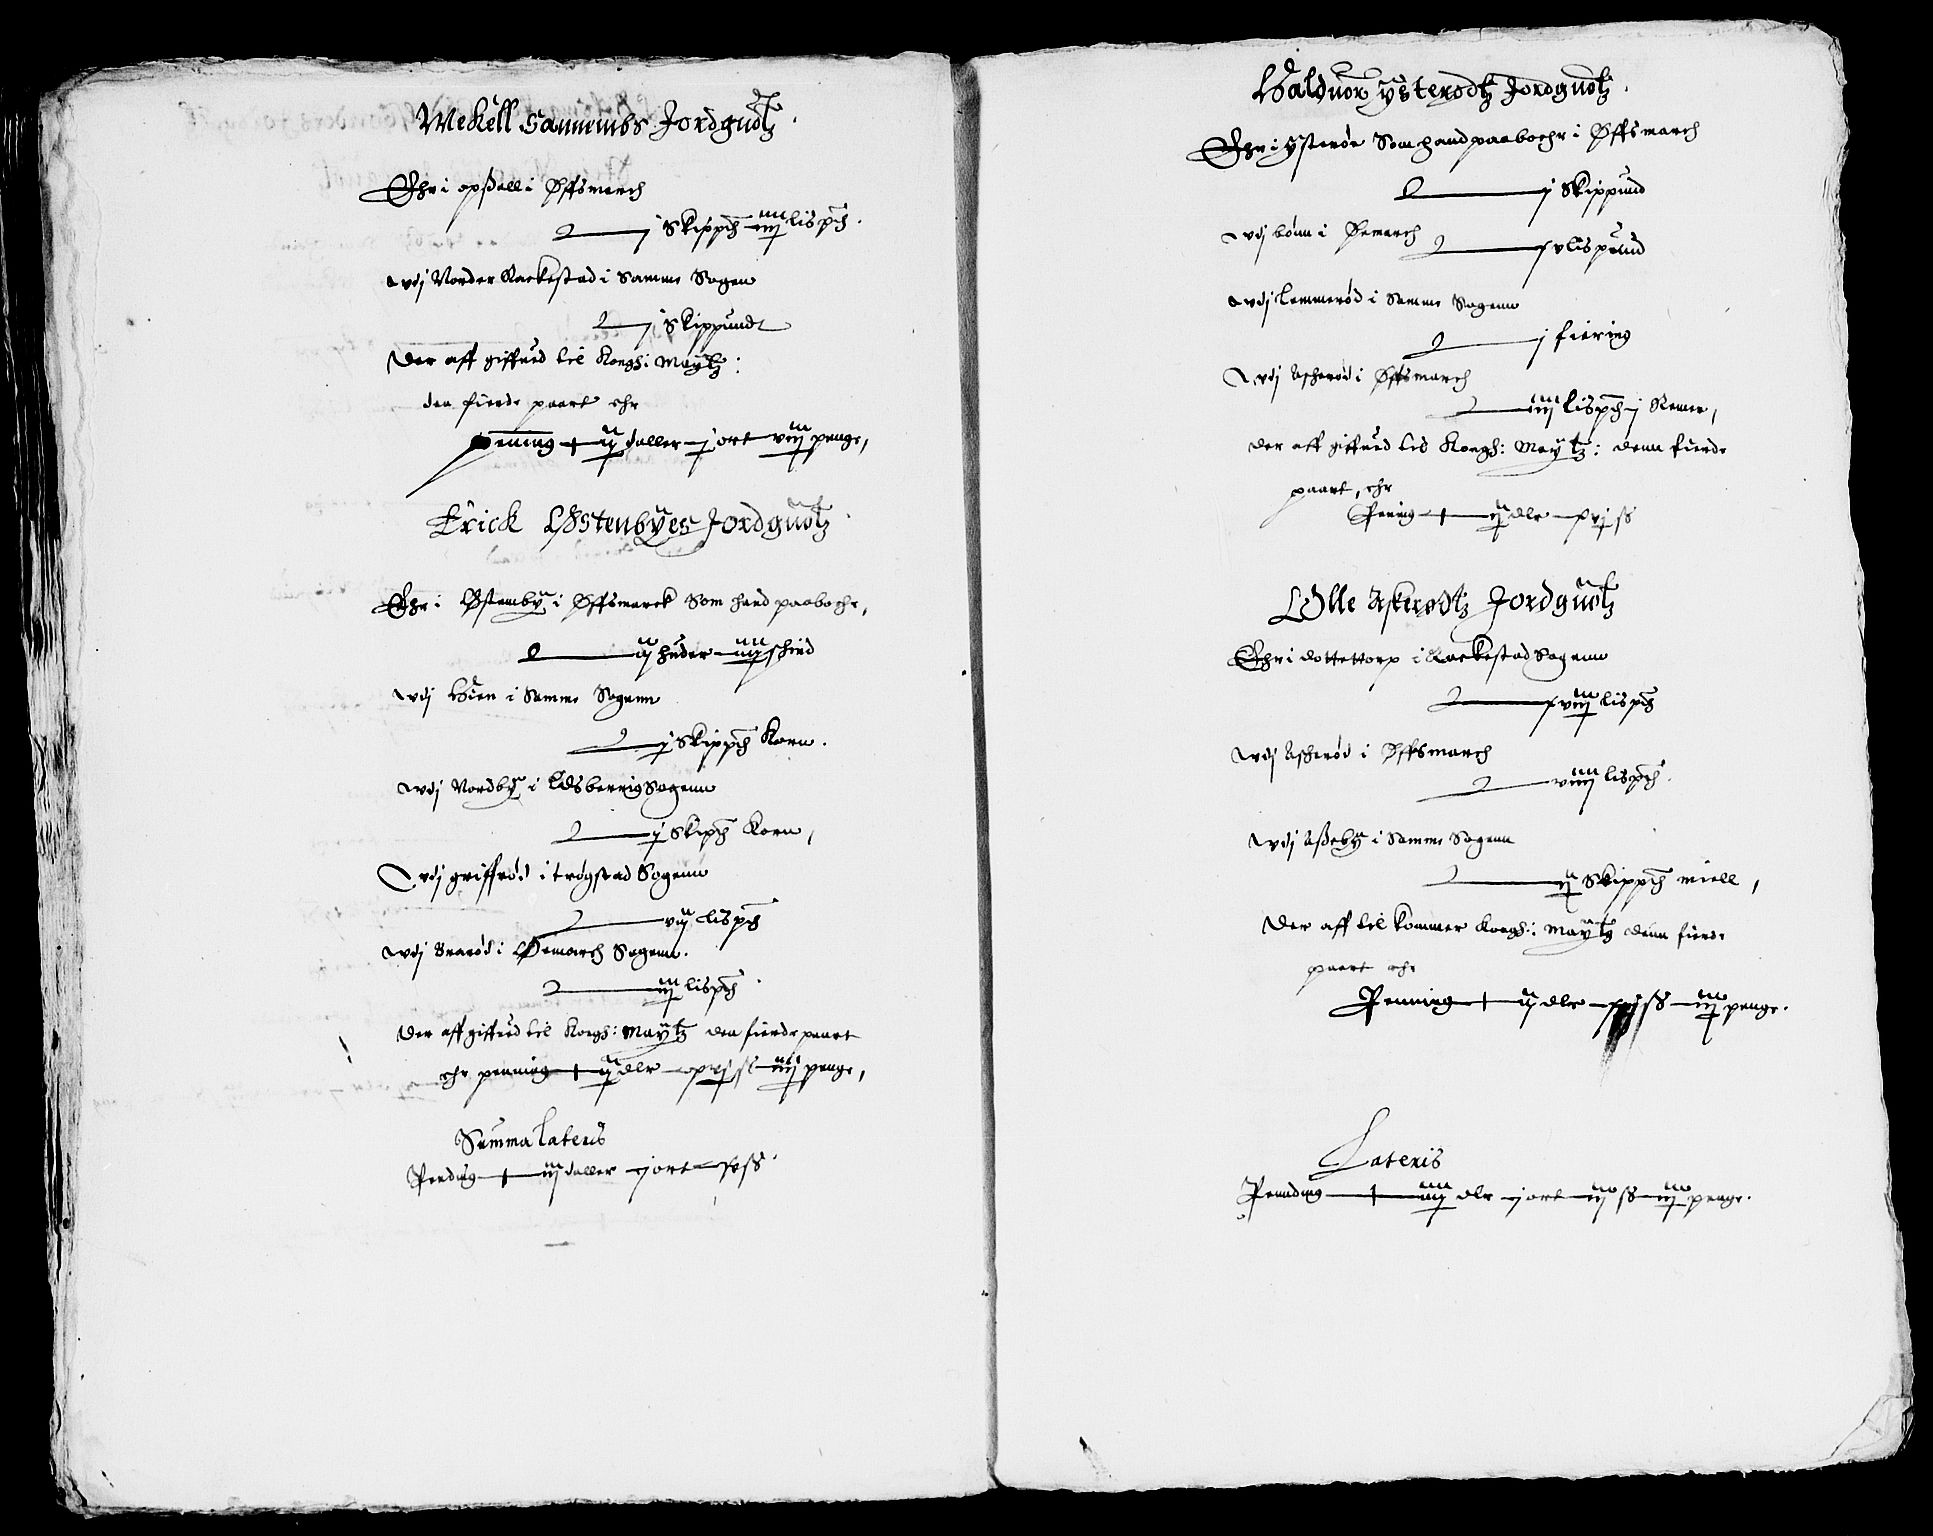 Mekell Jordguotz.
Ehr i opßall i Øffsmarch
j Skippd iiij lispd.
wdj Norder Rackestad i Samme Sogen
j Skippundt
Der aff giffued til Kongh: Maytz:
den fierde paart ehr
Pening ij daller j ort viij penge,
Erick Østenbyes Jordguotz.
Ehr i Østenby i Øffsmarck Som hand paaboehr,
ij huder iiij schind
wdj i Samme Sogenn
j Skippd Korn.
wdj Nordby i Edsberrig Sogenn
j Skipd Korn,
wdj griffrød i trøgstad Sogenn
vij lispd
wdj Brarød i Ømarch Sogenn.
iij lispd.
Der aff giffued til Kongh: Maytz den fierde paart
ehr penning ij dlr xvj ß iiij penge,
Summa Lateris
Pending iiij daller j ort xv ß.
Haldvor ysterødtz Jordguotz.
Ehr i ysterøe Som hand paaboehr i Øffsmarch
j Skippund
wdj bønn i Øemarch
xv lispund
wdj Lemmerød i Samme Sogenn
j fiering
wdj Askerød i Øffsmarch
iiij lispd j Remm,
Der aff giffued til Kongh: Maytz: denn fierde
paart, ehr
Pening ij dlr xvj ß
Olle Askerødtz Jordguotz
Ehr i dottettorp i Rackestad Sogenn
xviij lispd
wdj Askerød i Øffsmarch
viiij lispd.
wdj Aßeby i Samme Sogenn
ij Skippd miell,
Der aff til kommer Kongh: Maytz denn fierde
paart ehr
Penning ij dlr xvj ß iij penge.
Lateris
Pennding iiij dlr j ort iij ß iij penge.